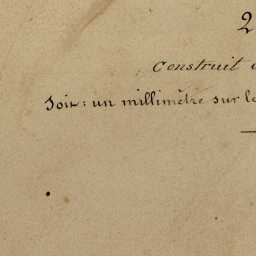 2
Construit
Soit: un millimètre sur le